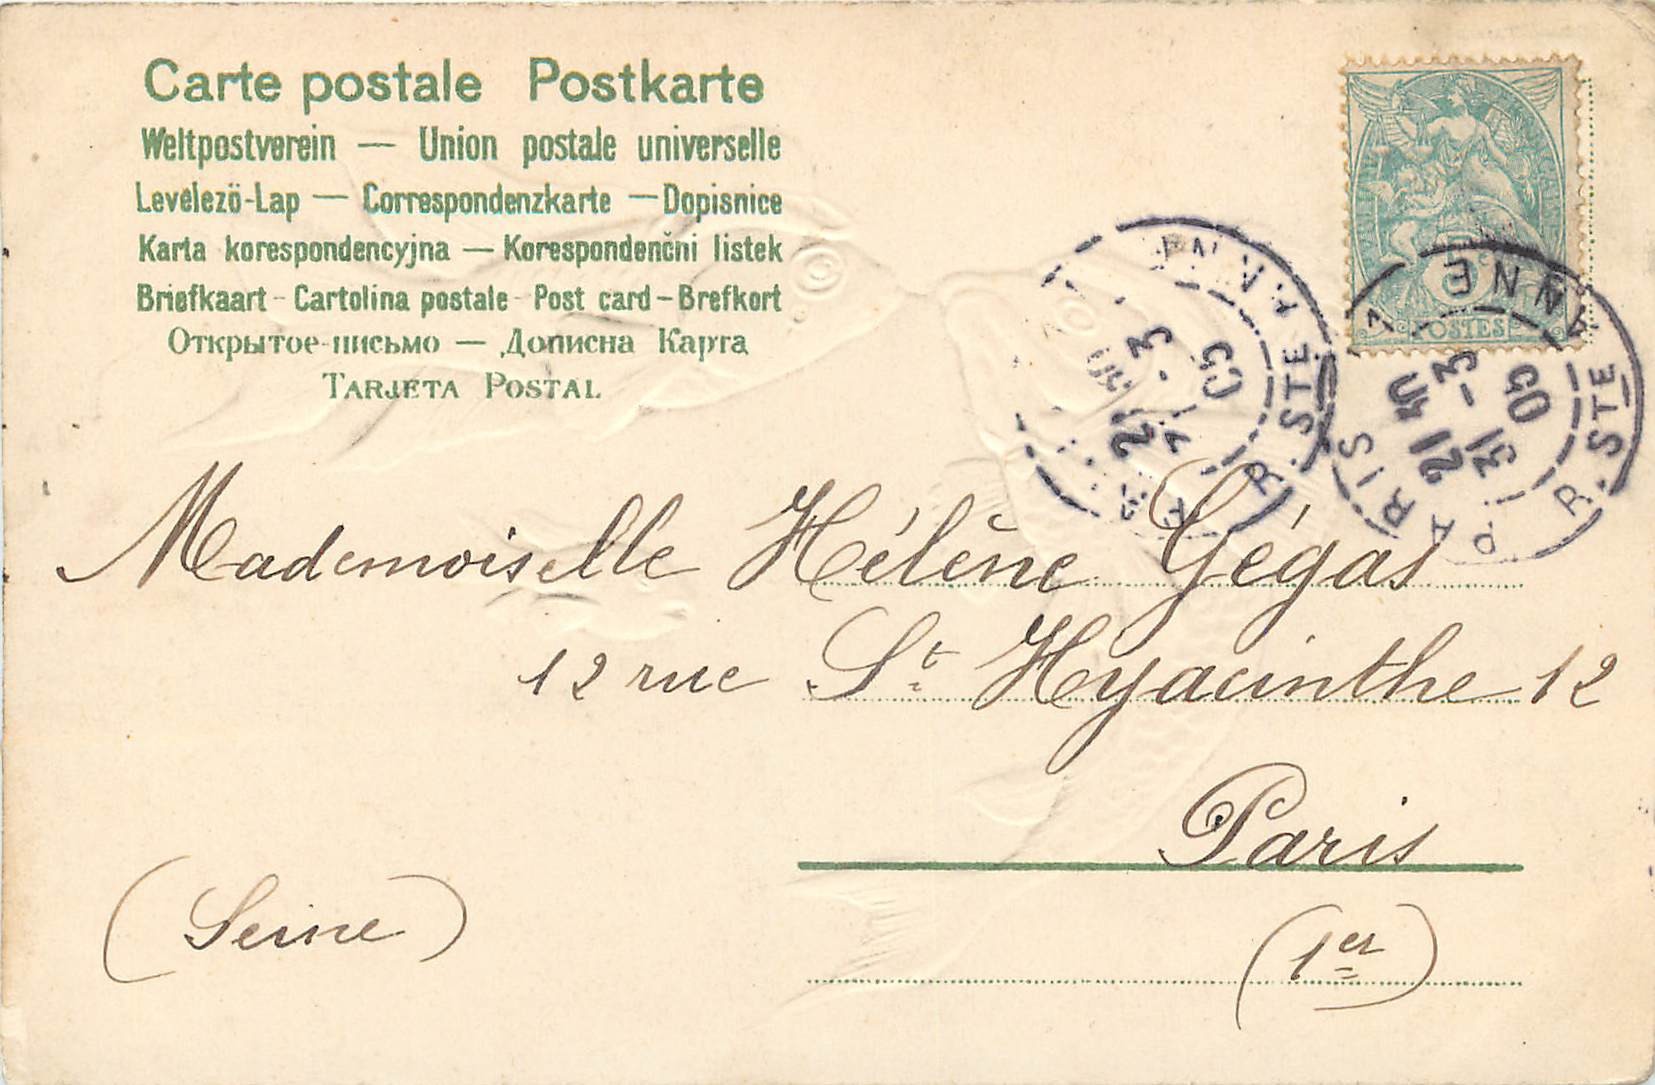 Carte postale Postkarte
Weltpostverein — Union postale universelle
Levélezö-Lap — Correspondenzkarte — Dopisnice
Karta korespondencyjna — Korespondenčni listek
Briefkaart - Cartolina postale - Post card - Brefkort
Открытое-письмо — Дописна Карта
TARJETA POSTAL
POSTES
PARIS R. STE ANNE
21 40
31 - 3
05
R. STE ANNE
21
- 3
05
Mademoiselle Hélène Gégas
12 rue St Hyacinthe 12
Paris
(Seine)
(1er)